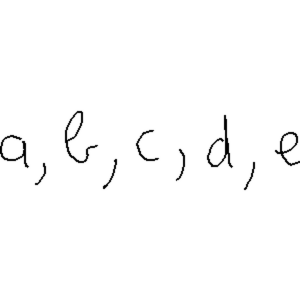 a, b, c, d, e